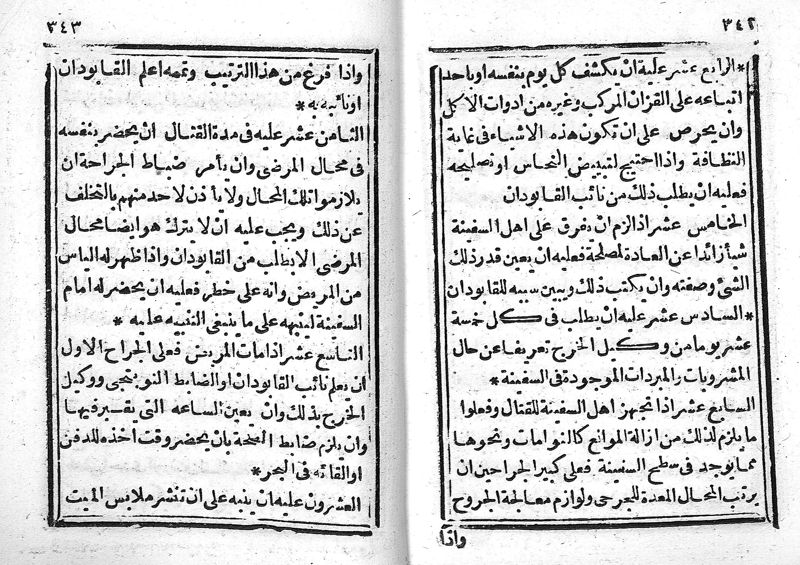 ٣٤٢
*الرابع عشر عليه ان يكشف كل يوم بنفسه او باحد
اتباعه على القزان المركب وغيره من ادوات الاكل
وان يحرص على ان تكون هذه الاشياء فى غاية
النظافة واذا احتيج لتبييض النحاس او تصليحه
فعليه ان يطلب ذلك من نائب القابودان
الخامس عشر اذا لزم ان يفرق على اهل السفينة
شيأ زائدا عن العادة لمصلحة فعليه ان يعين قدر ذلك
الشئ وصفته وان يكتب ذلك ويبين سببه للقابودان
*السادس عشر عليه ان يطلب فى كل خمسة
عشر يوما من وكيل الخرج تعريفا عن حال
المشروبات والمبردات الموجودة فى السفينة *
السابع عشر اذا تجهز اهل السفينة للقتال وفعلوا
ما يلزم لذلك من ازالة الموانع كالنوامات ونحوها
مما يوجد فى سطح السفينة فعلى كبير الجراحين ان
يرتب المحال المعدة للجرحى ولوازم معالجة الجروح
واذا
٣٤٣
واذا فرغ من هذا الترتيب وتممه اعلم القابودان
او نائبه به *
الثامن عشر عليه فى مدة القتال ان يحضر بنفسه
فى محال المرضى وان يأمر ضباط الجراحة ان
يلازموا تلك المحال ولا يأذن لاحد منهم بالتخلف
عن ذلك ويجب عليه ان لا يترك هو ايضا محال
المرضى الا بطلب من القابودان واذا ظهر له الياس
من المريض وانه على خطر فعليه ان يحضر له امام
السفينة لينبهه على ما ينبغى التنبيه عليه *
التاسع عشر اذا مات المريض فعلى الجراح الاول
ان يعلم نائب القابودان او الضابط النوبتجى ووكيل
الخرج بذلك وان يعين الساعه التى يقبر فيها
وان يلزم ضابط الصحة بان يحضر وقت اخذه للدفن
او القائه فى البحر *
العشرون عليه ان ينبه على ان تنشر ملابس الميت